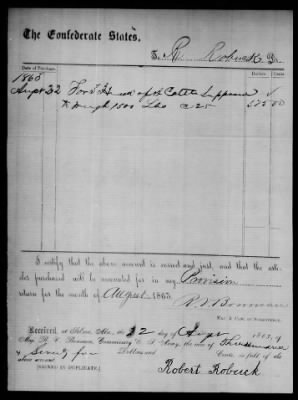 The Confederate States,
To R Robuck Dr.
Date of Purchase. Dollars Cents
1863
August 22 For 5 Head of Cattle Supposed
To weigh 1500 Lbs @ 25 375 00
I certify that the above account is correct and just, and that the articles purchased will be accounted for in my Provision
return for the month of August 1863.
R. V. Bonman
Received, at Selma, Ala. the 22 day of Augt 1863, of
Maj. R. V. Bonman, Commissary C. S. Army, the sum of Three Hundred
& Seventy five Dollars and Cents, in full of the
above account
[SIGNED IN DUPLICATE.]
Robert Robuck